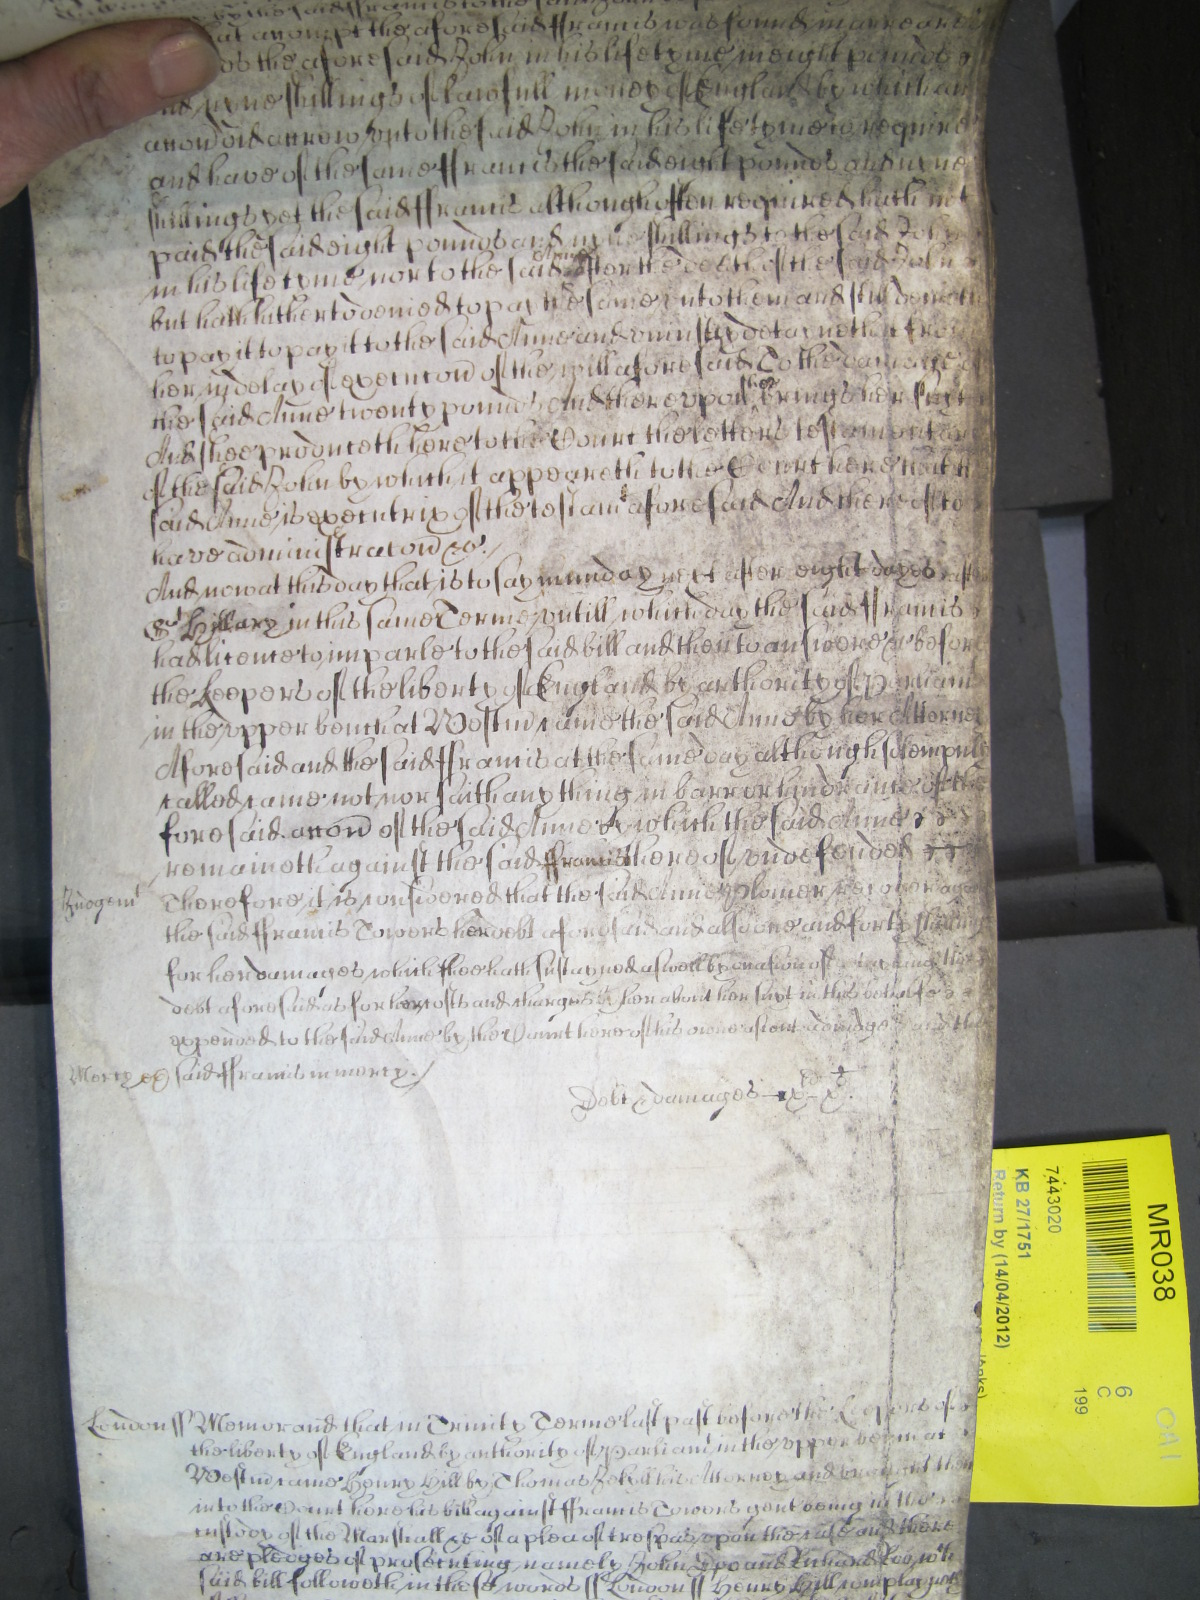 by the said ffrancis to the said John
that accompt the aforesaid ffrancis was found in arreare
to the aforesaid John in his life tyme in eight pounds
and nyne shillings of lawfull money of England by which an
accon did accrew unto the said John in his life tyme to require
and have of the same ffrancis the said eight pounds and nyne
shillings yet the said ffrancis although often required hath not
paid the said eight pounds and nyne shillings to the said John
in his life tyme nor to the said Anne after the death of the said John
but hath hitherto denied to pay the same unto them and still denieth
to pay it to pay it to the said Anne and uniustly detayneth it from
her in delay of execucon of the will aforesaid To the damage of
the said Anne twenty pounds And thereupon shee brings her suit
And shee produceth here to the Court the letters testamentary
of the said John by which it appeareth to the Court here that the
said Anne is executrix of the testamt aforesaid And thereof to
have administracon &c.
And now at this day that is to say munday next after eight dayes
St Hillary in this same Terme untill which day the said ffrancis
had licence to imparle to the said bill and then to answere &c before
the keepers of the liberty of England by authority of Parliamt
in the upper bench at Westmr came the said Anne by her Attorney
Aforesaid and the said ffrancis at the same day although solempnly
called came not nor saith any thing in barr or hindrance of the
foresaid accon of the said Anne by which the said Anne
remaineth against the said ffrancis thereof undefended
Judgemt Therefore it is considered that the said Anne Plomer recover against
the said ffrancis Towers her debt aforesaid and also one and forty shillings
for her damages which shee hath sustayned aswell by occasion of deteyning the
debt aforesaid as for her costs and charges by her about her suyt in this behalfe
expended to the said Anne by the Court here of his owne assent adiudged and the
Mercy &c said ffrancis in mercy./
Debt & damages
London ss Memorand that in Trinity Terme last past before the Keepers of
the liberty of England by authority of Parliamt in the upper bench at
Westmr came Henry Hill by Thomas Jekell his Attorney and brought then
into the Court here his bill against ffrancis Towers gent being in the
custody of the Marshall &c of a plea of trespas upon the case and there
are pledges of prosecuting namely John Doo and Richard Roo, wch
said bill followeth in these words ss London ss Henry Hill complayneth
MR038
7443020
KB 27/1751
Return by (14/04/2012)
6
C
199